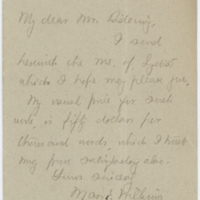 My dear Mr. 
I send
herewith the ms. of
which I hope may please you.
My usual price for such
work, is fifty dollars for
thousand words, which I trust
may prove satisfactory also.
Yours sincerely
Mary E. Wilkins